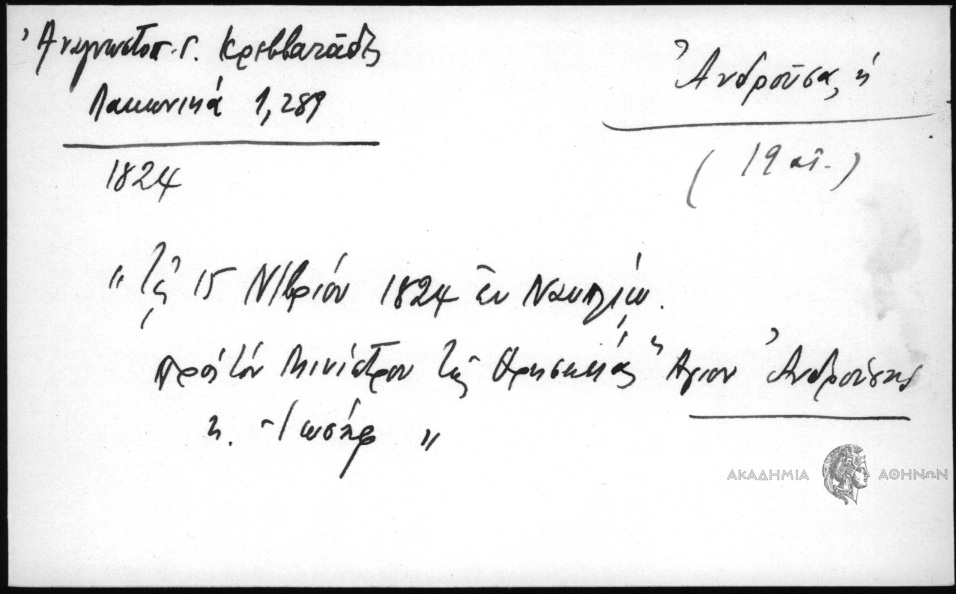 Ἀναγνωστοπ. Γ. Κρεββατάδες
Λακωνικά 1,289
1824
Ἀνδρούσα, ἡ
(19 αἰ.)
"Τῇ 15 Ν/βρίου 1824 ἐν Ναυπλίῳ.
πρός τόν Μινίστρον τῆς Θρησκείας Ἅγιον Ἀνδρούσης
κ. Ἰωσήφ "
ΑΚΑΔΗΜΙΑ ΑΘΗΝΩΝ